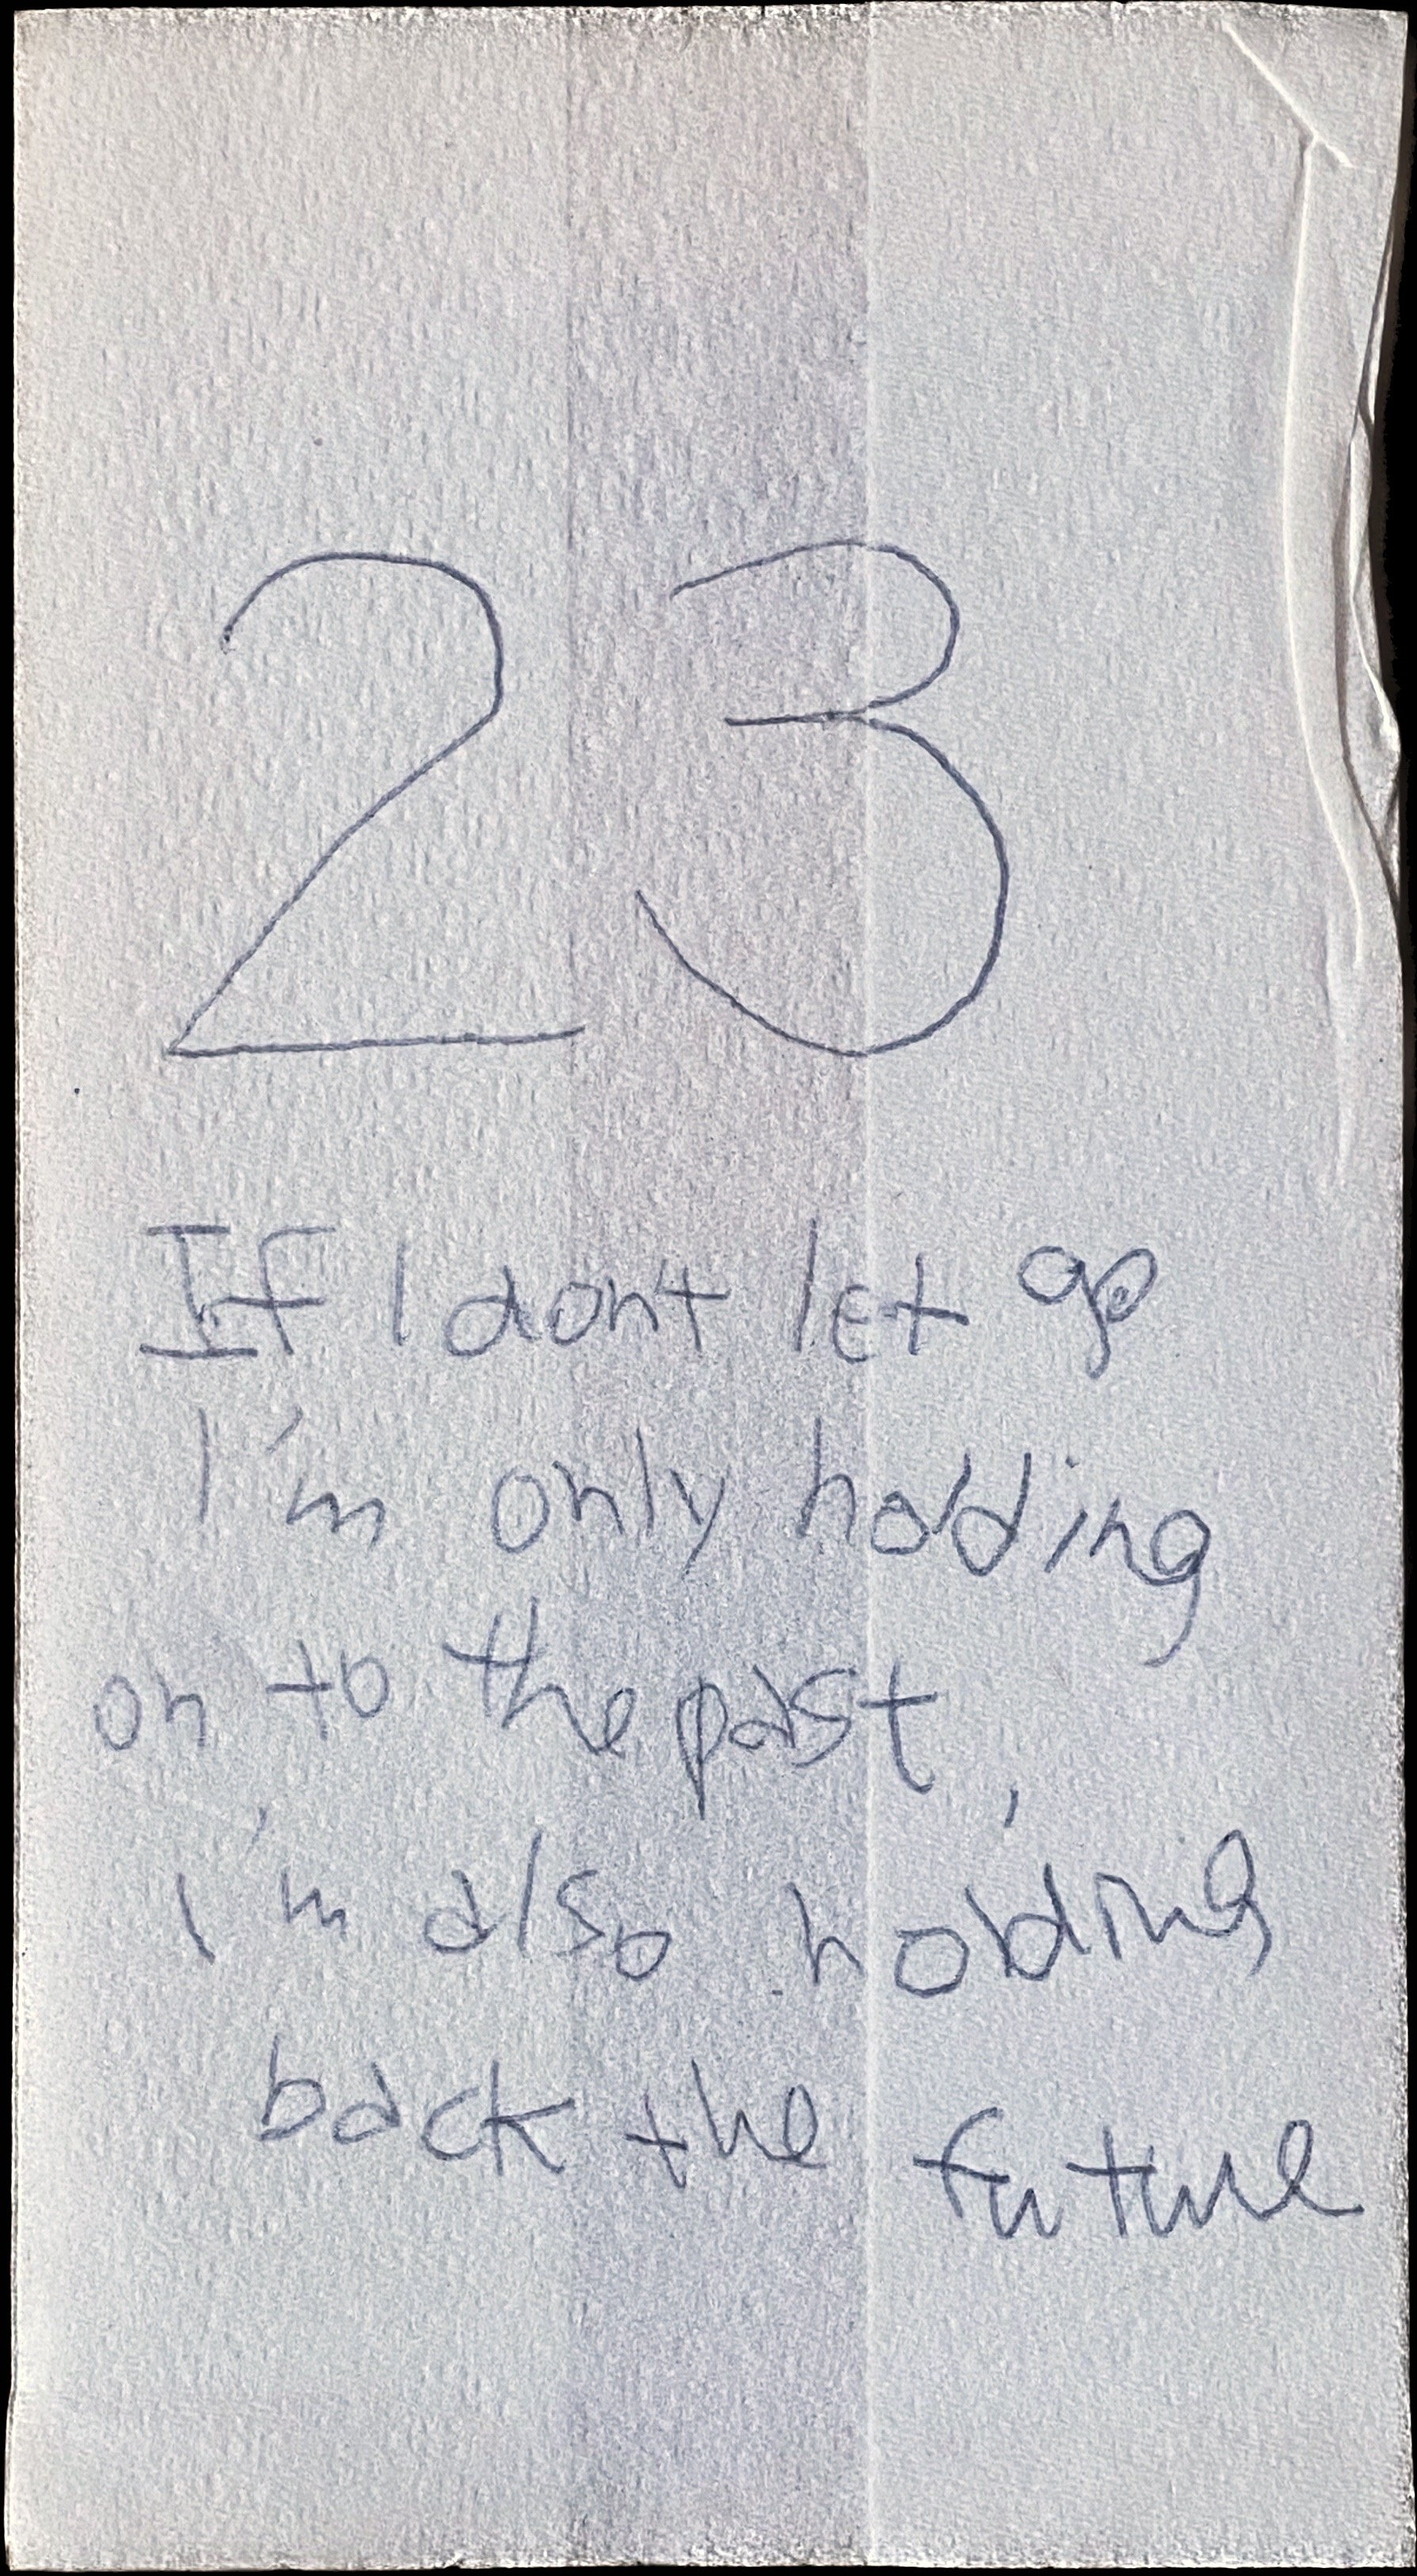 23
If I don't let go
I'm only holding
on to the past,
I'm also holding
back the future